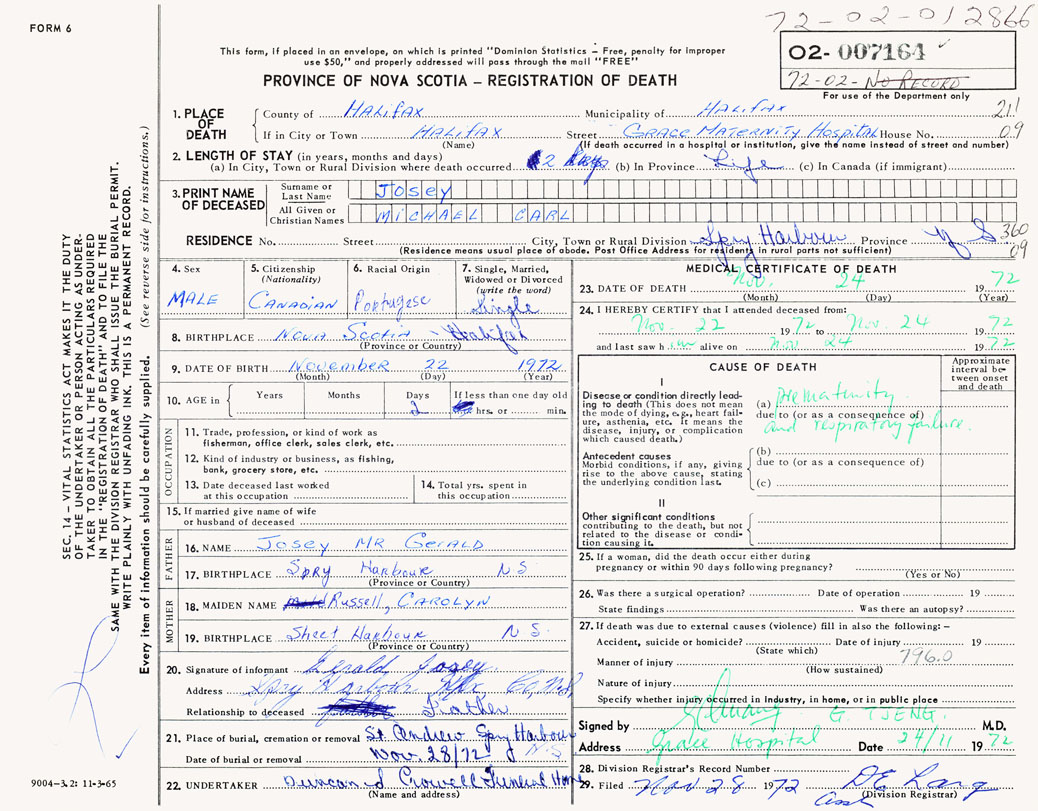 FORM 6
72-02-012866
This form, if placed in an envelope, on which is printed "Dominion Statistics – Free, penalty for improper
use $50," and properly addressed will pass through the mail "FREE"
02- 007164
72-02-No Record
For use of the Department only
PROVINCE OF NOVA SCOTIA – REGISTRATION OF DEATH
1. PLACE OF DEATH
County of Halifax Municipality of Halifax 211
If in City or Town Halifax Street Grace Maternity Hospital House No. 09
(Name) (If death occurred in a hospital or institution, give the name instead of street and number)
2. LENGTH OF STAY (in years, months and days)
(a) In City, Town or Rural Division where death occurred 2 (b) In Province Life (c) In Canada (if immigrant)
3. PRINT NAME OF DECEASED
Surname or Last Name JOSEY
All Given or Christian Names MICHAEL CARL
RESIDENCE No. Street City, Town or Rural Division Spry Harbour Province N S 360 09
(Residence means usual place of abode. Post Office Address for residents in rural parts not sufficient)
4. Sex MALE
5. Citizenship (Nationality) CANADIAN
6. Racial Origin Portugese
7. Single, Married, Widowed or Divorced (write the word) Single
8. BIRTHPLACE Nova Scotia - Halifax
(Province or Country)
9. DATE OF BIRTH November 22 1972
(Month) (Day) (Year)
10. AGE in Years Months Days 2 If less than one day old hrs. or min.
OCCUPATION
11. Trade, profession, or kind of work as
fisherman, office clerk, sales clerk, etc.
12. Kind of industry or business, as fishing,
bank, grocery store, etc.
13. Date deceased last worked
at this occupation
14. Total yrs. spent in
this occupation
15. If married give name of wife
or husband of deceased
FATHER
16. NAME Josey Mr Gerald
17. BIRTHPLACE Spry Harbour N S
(Province or Country)
MOTHER
18. MAIDEN NAME Russell, Carolyn
19. BIRTHPLACE Sheet Harbour N S.
(Province or Country)
20. Signature of informant Gerald Josey
Address Spry Harbour Hfx Co, N.S,
Relationship to deceased Father
21. Place of burial, cremation or removal St. Andrew Spry Harbour
N S
Date of burial or removal Nov. 28/72
22. UNDERTAKER Duncan J Crowell Funeral Home
(Name and address)
MEDICAL CERTIFICATE OF DEATH
23. DATE OF DEATH Nov. 24 1972
(Month) (Day) (Year)
24. I HEREBY CERTIFY that I attended deceased from:
Nov. 22 1972 to Nov 24 1972
and last saw him alive on Nov 24 1972
CAUSE OF DEATH
Approximate interval between onset and death
I
Disease or condition directly leading to death (This does not mean the mode of dying, e.g., heart failure, asthenia, etc. it means the disease, injury, or complication which caused death.)
(a) prematurity
due to (or as a consequence of)
and respiratory failure.
Antecedent causes
Morbid conditions, if any, giving rise to the above cause, stating the underlying condition last.
(b)
due to (or as a consequence of)
(c)
II
Other significant conditions
contributing to the death, but not related to the disease or condition causing it.
25. If a woman, did the death occur either during
pregnancy or within 90 days following pregnancy?
(Yes or No)
26. Was there a surgical operation? Date of operation 19
State findings Was there an autopsy?
27. If death was due to external causes (violence) fill in also the following: –
Accident, suicide or homicide? Date of injury 19
(State which) 796.0
Manner of injury
(How sustained)
Nature of injury
Specify whether injury occurred in industry, in home, or in public place
Signed by G. TSENG. M.D.
Address Grace Hospital Date 24/11 1972
28. Division Registrar's Record Number
29. Filed Nov 28 1972
(Division Registrar)
SEC. 14 – VITAL STATISTICS ACT MAKES IT THE DUTY
OF THE UNDERTAKER OR PERSON ACTING AS UNDER-
TAKER TO OBTAIN ALL THE PARTICULARS REQUIRED
IN THE "REGISTRATION OF DEATH" AND TO FILE THE
SAME WITH THE DIVISION REGISTRAR WHO SHALL ISSUE THE BURIAL PERMIT.
WRITE PLAINLY WITH UNFADING INK. THIS IS A PERMANENT RECORD.
Every item of information should be carefully supplied. (See reverse side for instructions.)
9004-3.2: 11-3-65